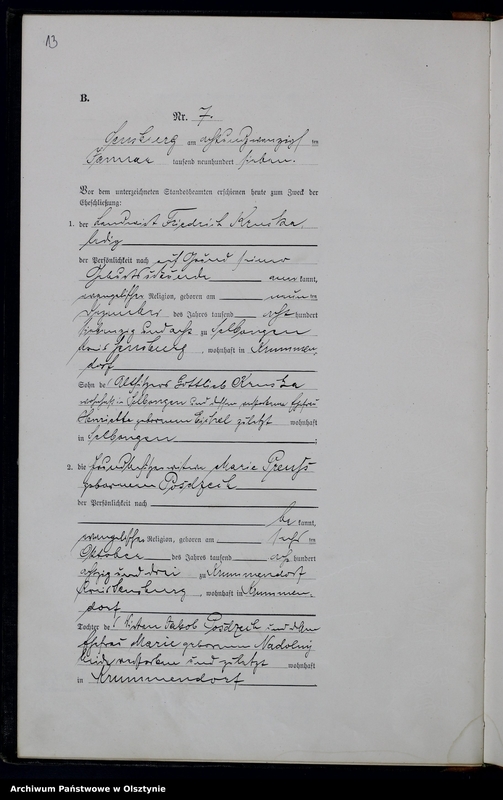 13
B.
Nr. 7.
Sensburg am achtundzwanzigsten
Januar tausend neunhundert sieben.
Vor dem unterzeichneten Standesbeamten erschienen heute zum Zweck der
Eheschließung:
1. der Landwirt Friedrich
ledig
der Persönlichkeit nach auf Grund seiner
Geburtsurkunde anerkannt,
evangelischer Religion, geboren am neunten
Dezember des Jahres tausend acht hundert
siebenzig und acht zu Selbongen
Kreis Sensburg, wohnhaft in Krummen-
dorf
Sohn des Altsitzers Gottlieb
wohnhaft in Selbongen und dessen verstorbenen Ehefrau
Henriette geborenen zuletzt wohnhaft
in Selbongen.
2. die Marie
geborenen Posdzech
der Persönlichkeit nach
be kannt,
evangelischer Religion, geboren am sechsten
Oktober des Jahres tausend acht hundert
achtzig und drei zu Krummendorf
Kreis Sensburg, wohnhaft in Krummen-
dorf
Tochter des Jakob Posdzech und dessen
Ehefrau Marie geborenen Nadolny
beide verstorben und zuletzt wohnhaft
in Krummendorf
Archiwum Państwowe w Olsztynie